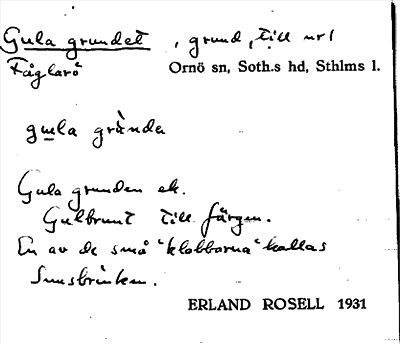 Gula grundet, grund, till nr 1
Fåglarö
Ornö sn, Soth.s hd, Sthlms l.
gula grùnda
Gula grunden ek.
Gulbrunt till färgen.
En av de små "klobbarna" kallas
Snusbrinken.
ERLAND ROSELL 1931